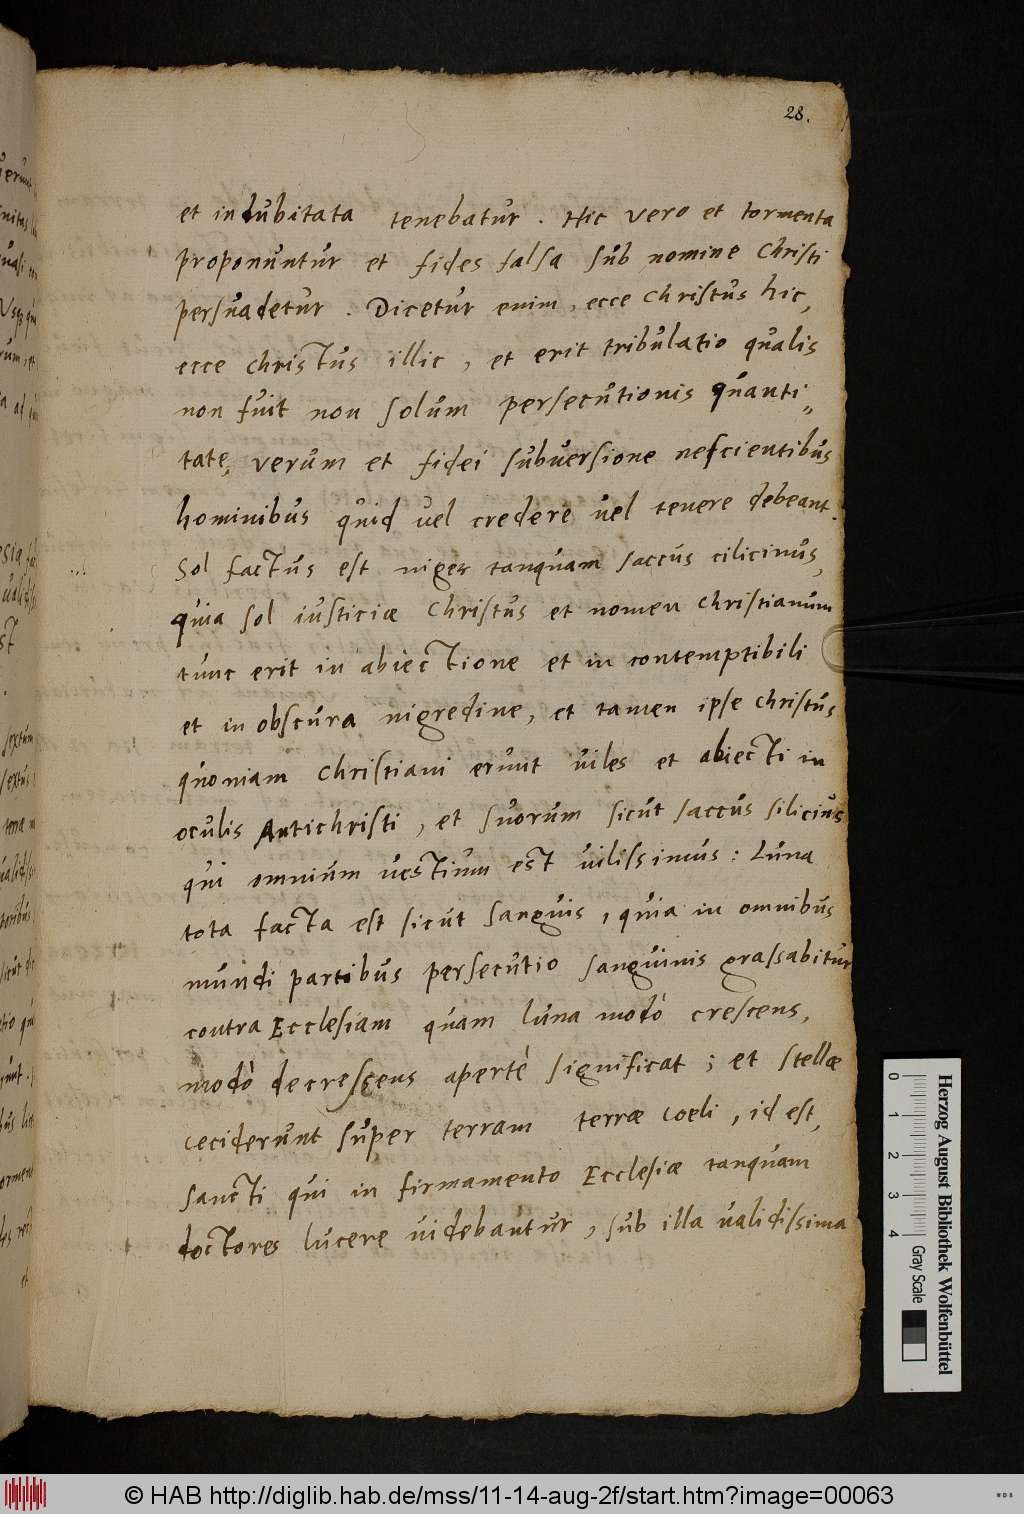 28.
et indubitata tenebatur. Hic vero et tormenta
proponuntur et fides falsa sub nomine Christi
persuadetur. Dicetur enim, ecce Christus hic,
ecce Christus illic, et erit tribulatio qualis
non fuit non solum persecutionis quanti„
tate, verum et fidei subuersione nescientibus
hominibus quid uel credere uel tenere debeant.
Sol factus est niger tanquam saccus cilicinus,
quia sol iusticiæ Christus et nomen Christianum
tunc erit in abiectione et in contemptibili
et in obscura nigredine, et tamen ipse Christus
quoniam Christiani erunt uiles et abiecti in
oculis Antichristi, et suorum sicut saccus silicius
qui omnium uestium est uilissimus: Luna
tota facta est sicut sanguis, quia in omnibus
mundi partibus persecutio sanguinis grassabitur
contra Ecclesiam quam luna modò crescens,
modò decrescens apertè significat; et stellæ
ceciderunt super terram terræ coeli, id est,
sancti qui in firmamento Ecclesiæ tanquam
doctores lucere uidebantur, sub illa ualidissima
Herzog August Bibliothek Wolfenbüttel
0 1 2 3 4 Gray Scale
© HAB http://diglib.hab.de/mss/11-14-aug-2f/start.htm?image=00063